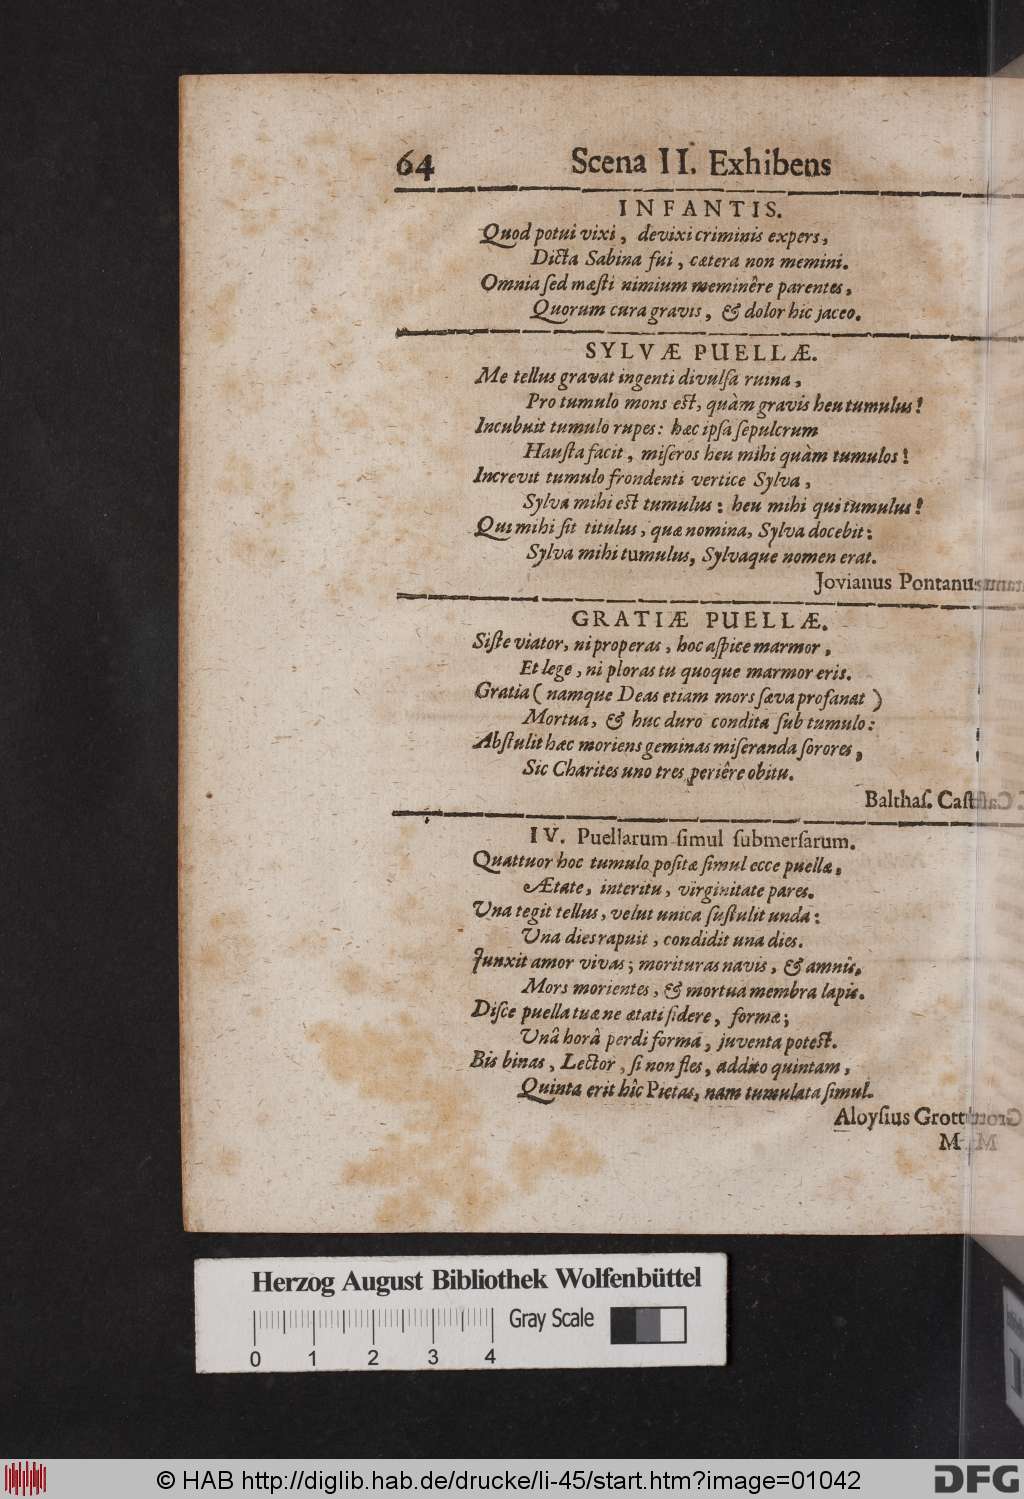 64 Scena II. Exhibens
INFANTIS.
Quod potui vixi, devixi criminis expers,
Dicta Sabina fui, cætera non memini.
Omnia sed mæsti nimium meminêre parentes,
Quorum cura gravis, & dolor hic jaceo.
SYLVÆ PUELLÆ.
Me tellus gravat ingenti divulsa ruina,
Pro tumulo mons est, quàm gravis heu tumulus!
Incubuit tumulo rupes: hæc ipsa sepulcrum
Hausta facit, miseros heu mihi quàm tumulos!
Increvit tumulo frondenti vertice Sylva,
Sylva mihi est tumulus: heu mihi qui tumulus!
Qui mihi sit titulus, quæ nomina, Sylva docebit:
Sylva mihi tumulus, Sylvaque nomen erat.
Jovianus Pontanus
GRATIÆ PUELLÆ.
Siste viator, ni properas, hoc aspice marmor,
Et lege, ni ploras tu quoque marmor eris.
Gratia (namque Deas etiam mors sæva profanat)
Mortua, & huc duro condita sub tumulo:
Abstulit hæc moriens geminas miseranda sorores,
Sic Charites uno tres periêre obitu.
Balthas. Cast
IV. Puellarum simul submersarum.
Quattuor hoc tumulo positæ simul ecce puellæ,
Ætate, interitu, virginitate pares.
Una tegit tellus, velut unica sustulit unda:
Una dies rapuit, condidit una dies.
Junxit amor vivas; morituras navis, & amnis,
Mors morientes, & mortua membra lapis.
Disce puella tuæ ne ætati fidere, formæ;
Unâ horâ perdi forma, juventa potest.
Bis binas, Lector, si non fles, addito quintam,
Quinta erit hîc Pietas, nam tumulata simul.
Aloysius Grott
M
Herzog August Bibliothek Wolfenbüttel
Gray Scale
0 1 2 3 4
© HAB http://diglib.hab.de/drucke/li-45/start.htm?image=01042
DFG